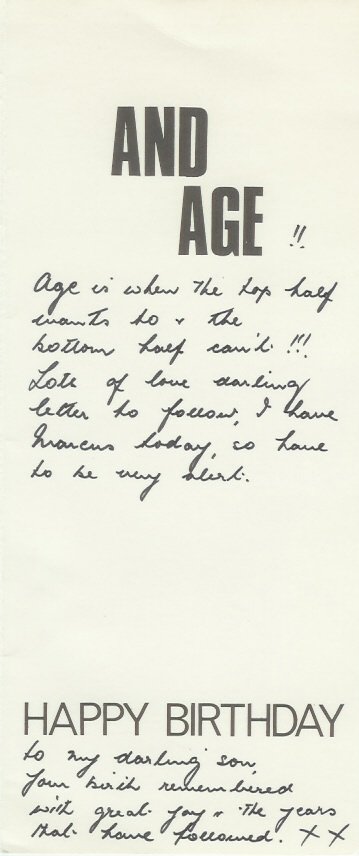 AND
AGE !!
Age is when the top half
wants to & the
bottom half can't !!!
Lots of love darling
letter to follow, I have
Marcus today, so have
to be very alert.
HAPPY BIRTHDAY
to my darling son,
Your birth remembered
with great joy & the years
that have followed. X X